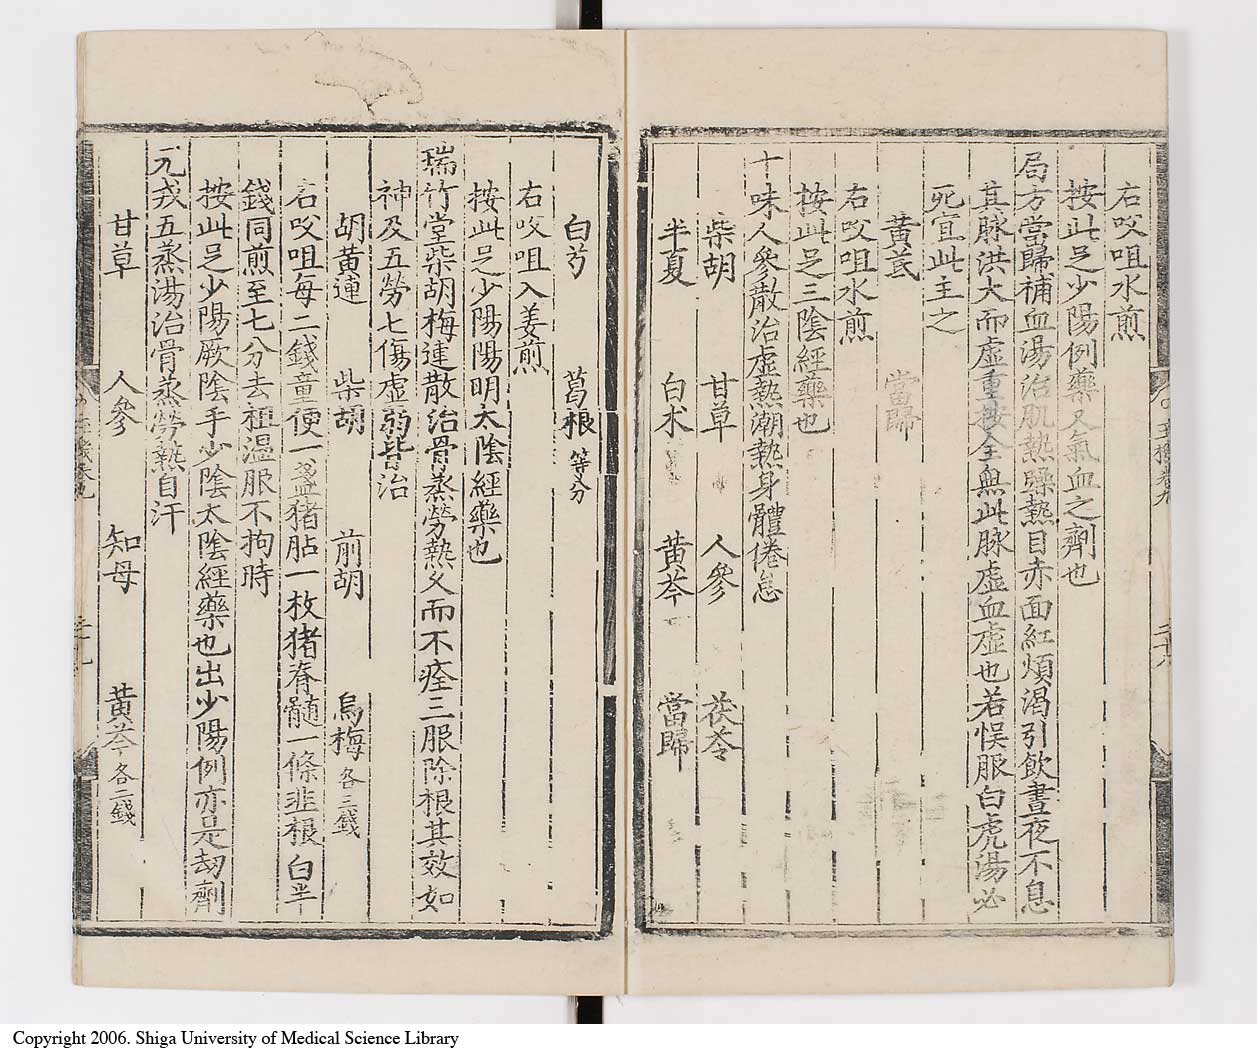 右㕮咀水煎
按此足少陽例藥又氣血之劑也
局方當歸補血湯治肌熱躁熱目赤面紅煩渴引飲晝夜不息
其脉洪大而虛重按全無此脉虛血虛也若悞服白虎湯必
死宜此主之
黃芪 當歸
右㕮咀水煎
按此足三陰經藥也
十味人參散治虛熱潮熱身體倦怠
柴胡 甘草 人參 茯苓
半夏 白朮 黃芩 當歸
白芍 葛根 等分
右㕮咀入姜煎
按此足少陽陽明太陰經藥也
瑞竹堂柴胡梅連散治骨蒸勞熱久而不痊三服除根其效如
神及五勞七傷虛弱皆治
胡黃連 柴胡 前胡 烏梅 各三錢
右㕮咀每二錢童便一盞猪胆一枚猪脊髓一條韭根白半
錢同煎至七八分去柤溫服不拘時
按此足少陽厥陰手少陰太陰經藥也出少陽例亦是刼劑
元戎五蒸湯治骨蒸勞熱自汗
甘草 人參 知母 黃芩 各二錢
Copyright 2006. Shiga University of Medical Science Library